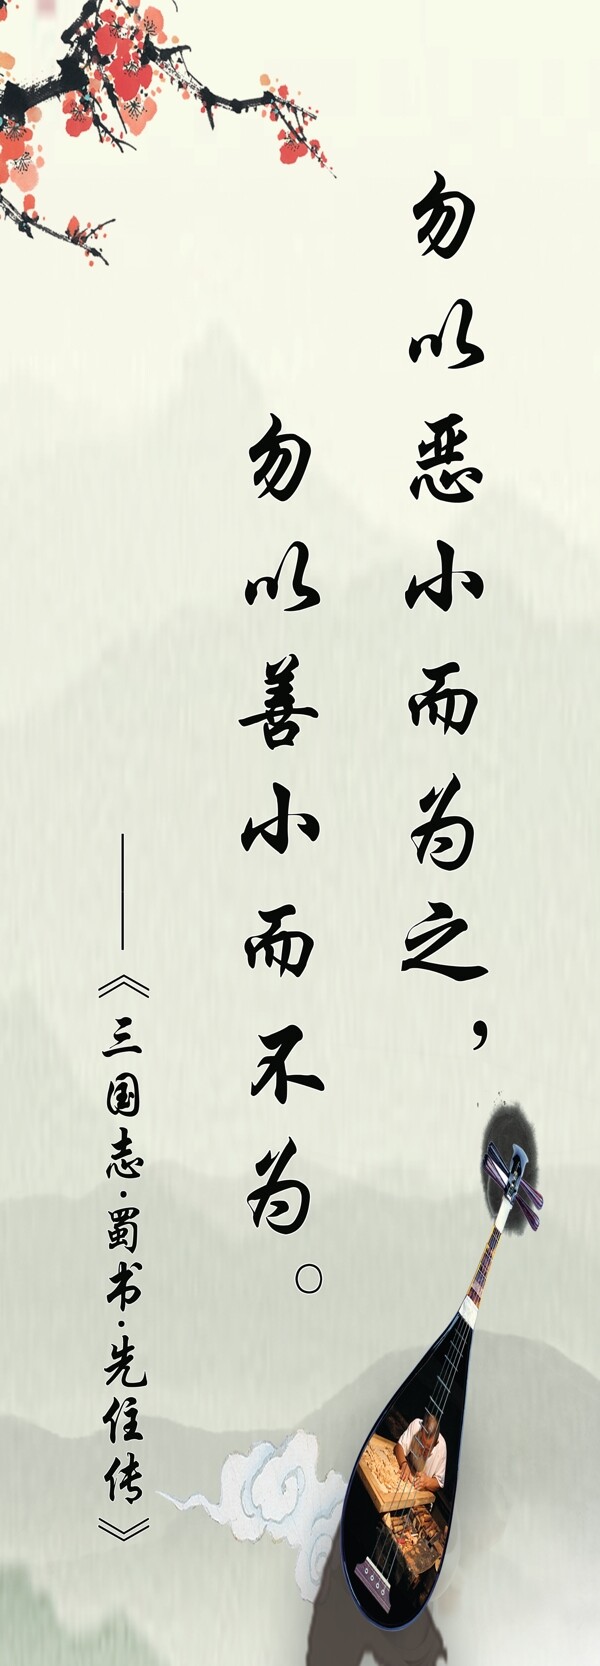 勿以恶小而为之，
勿以善小而不为。
——《三国志·蜀书·先住传》